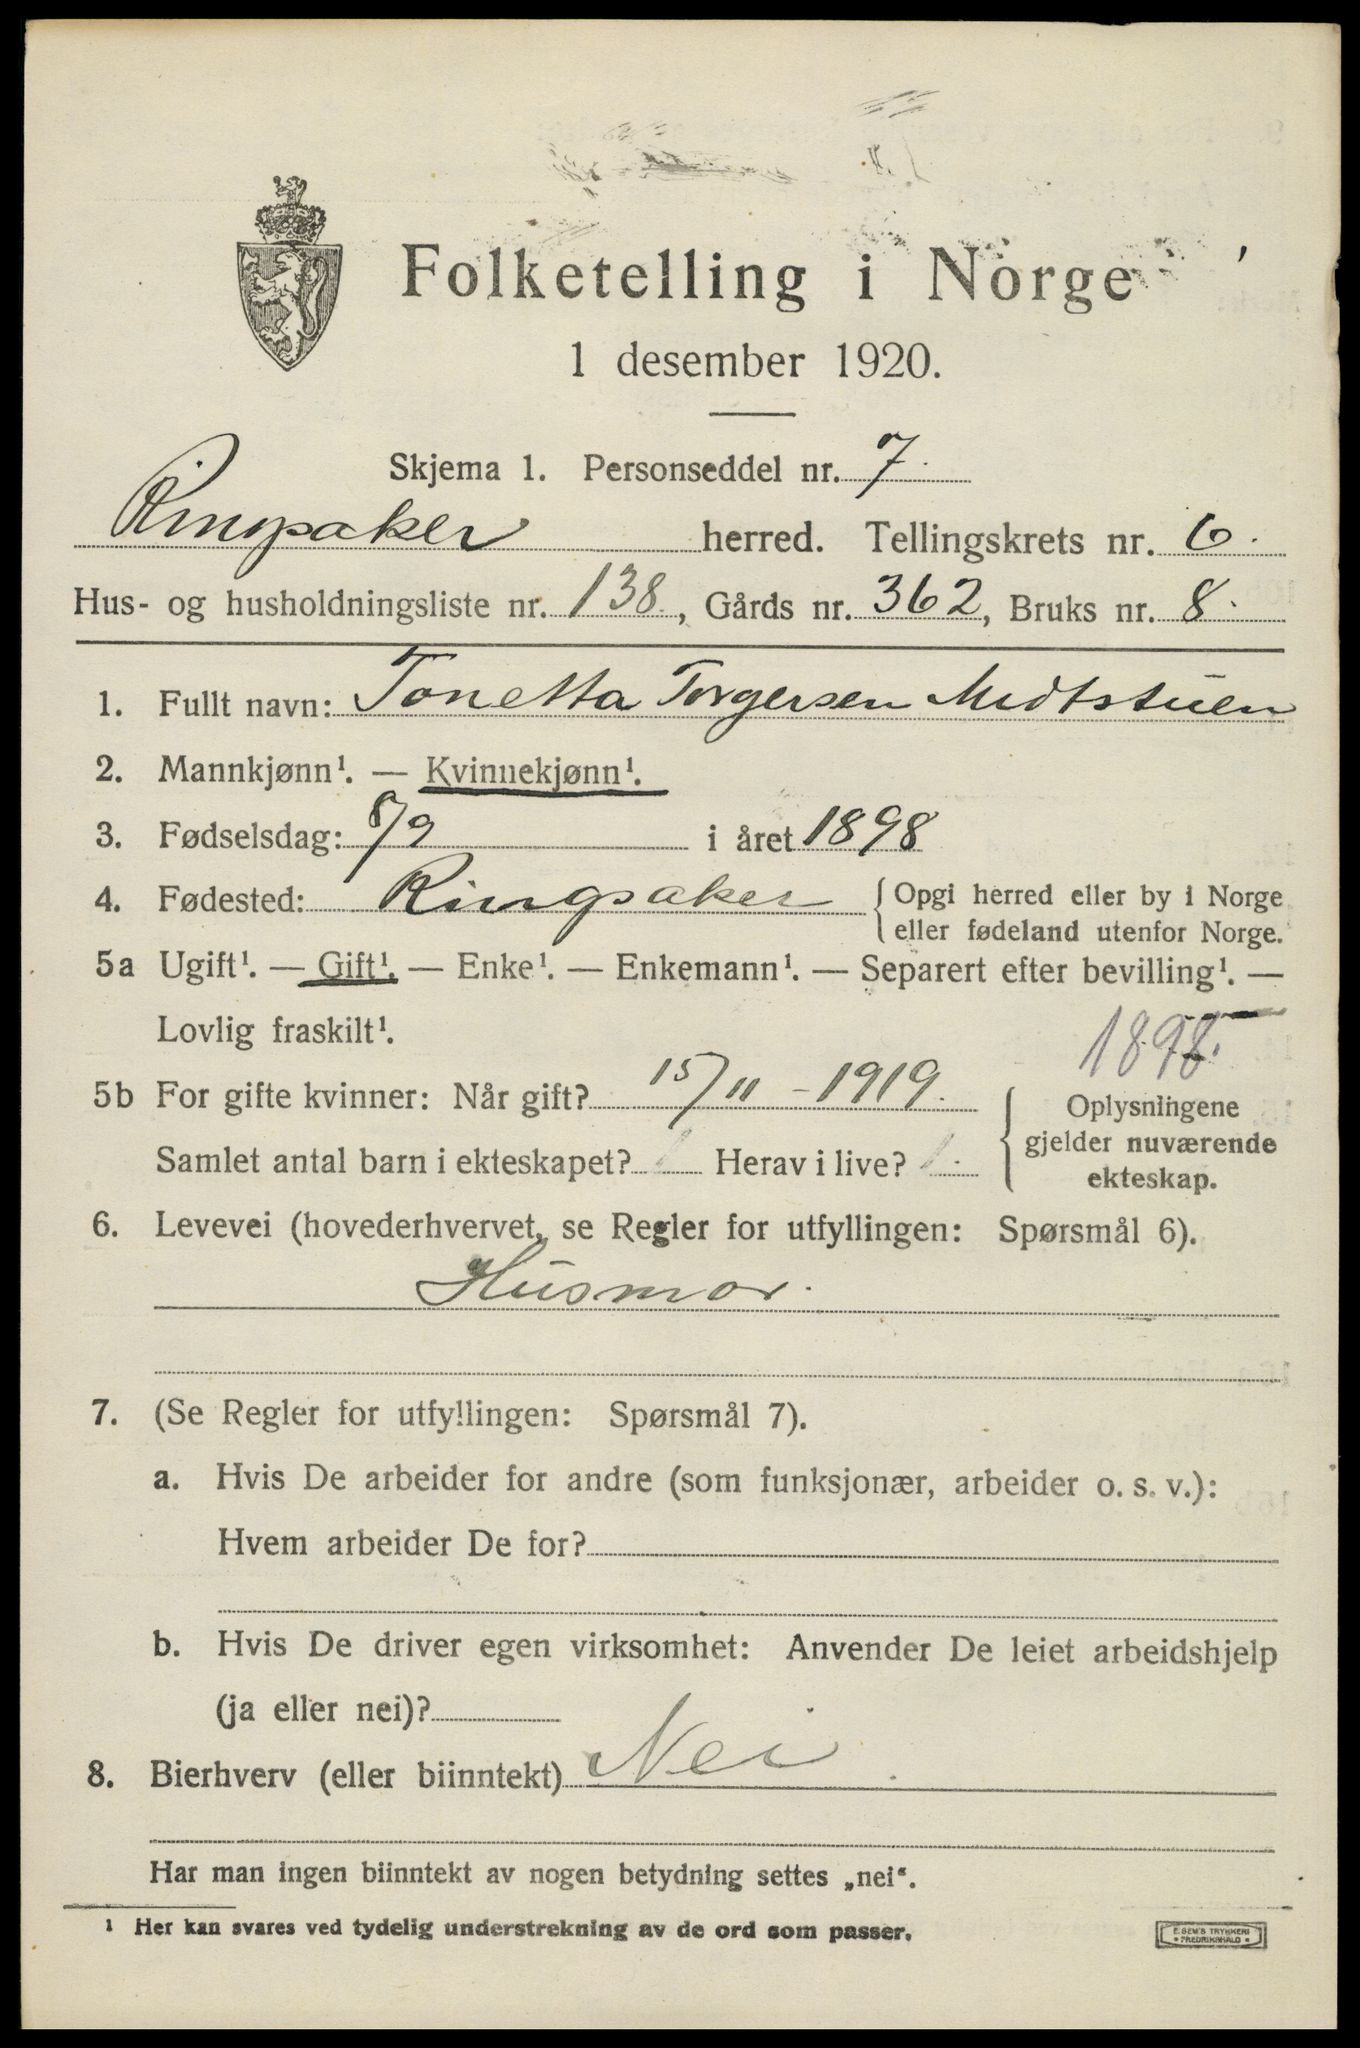 Folketelling i Norge
1 desember 1920.
Skjema 1. Personseddel nr. 7.
Ringsaker herred. Tellingskrets nr. 6.
Hus- og husholdningsliste nr. 138., Gårds nr. 362, Bruks nr. 8.
1. Fullt navn: Tonetta Torgersen Midtstuen
2. Mannkjønn¹. — Kvinnekjønn¹.
3. Fødselsdag: 8/9 i året 1898
4. Fødested: Ringsaker { Opgi herred eller by i Norge
eller fødeland utenfor Norge.
5a Ugift¹. — Gift¹. — Enke¹. — Enkemann¹. — Separert efter bevilling¹. —
Lovlig fraskilt¹.
1898.
5b For gifte kvinner: Når gift? 15/11 - 1919. { Oplysningene
gjelder nuværende
Samlet antal barn i ekteskapet? 1 Herav i live? 1.
ekteskap.
6. Levevei (hovederhvervet, se Regler for utfyllingen: Spørsmål 6).
Husmor.
7. (Se Regler for utfyllingen: Spørsmål 7).
a. Hvis De arbeider for andre (som funksjonær, arbeider o. s. v.):
Hvem arbeider De for?
b. Hvis De driver egen virksomhet: Anvender De leiet arbeidshjelp
(ja eller nei)?
8. Bierhverv (eller biinntekt) Nei.
Har man ingen biinntekt av nogen betydning settes „nei“.
¹ Her kan svares ved tydelig understrekning av de ord som passer.
E. SEM'S TRYKKERI
• FREDRIKSHALD •